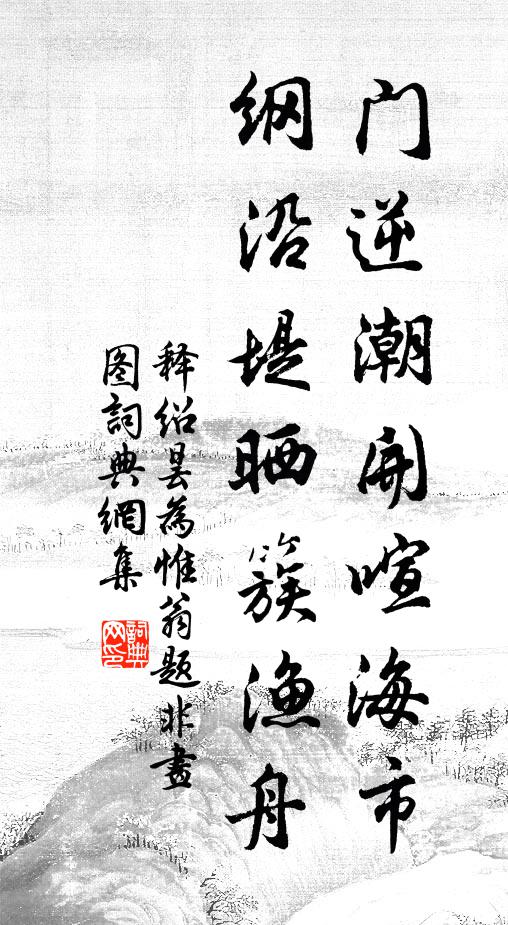 门逆潮开喧海市
纲沿堤晒簇渔舟
释绍昙为惟翁题非画
图词典网集
词典网印